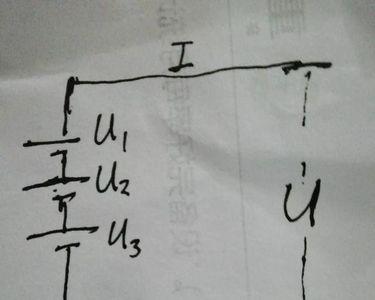 I
U1
U2
U3
U